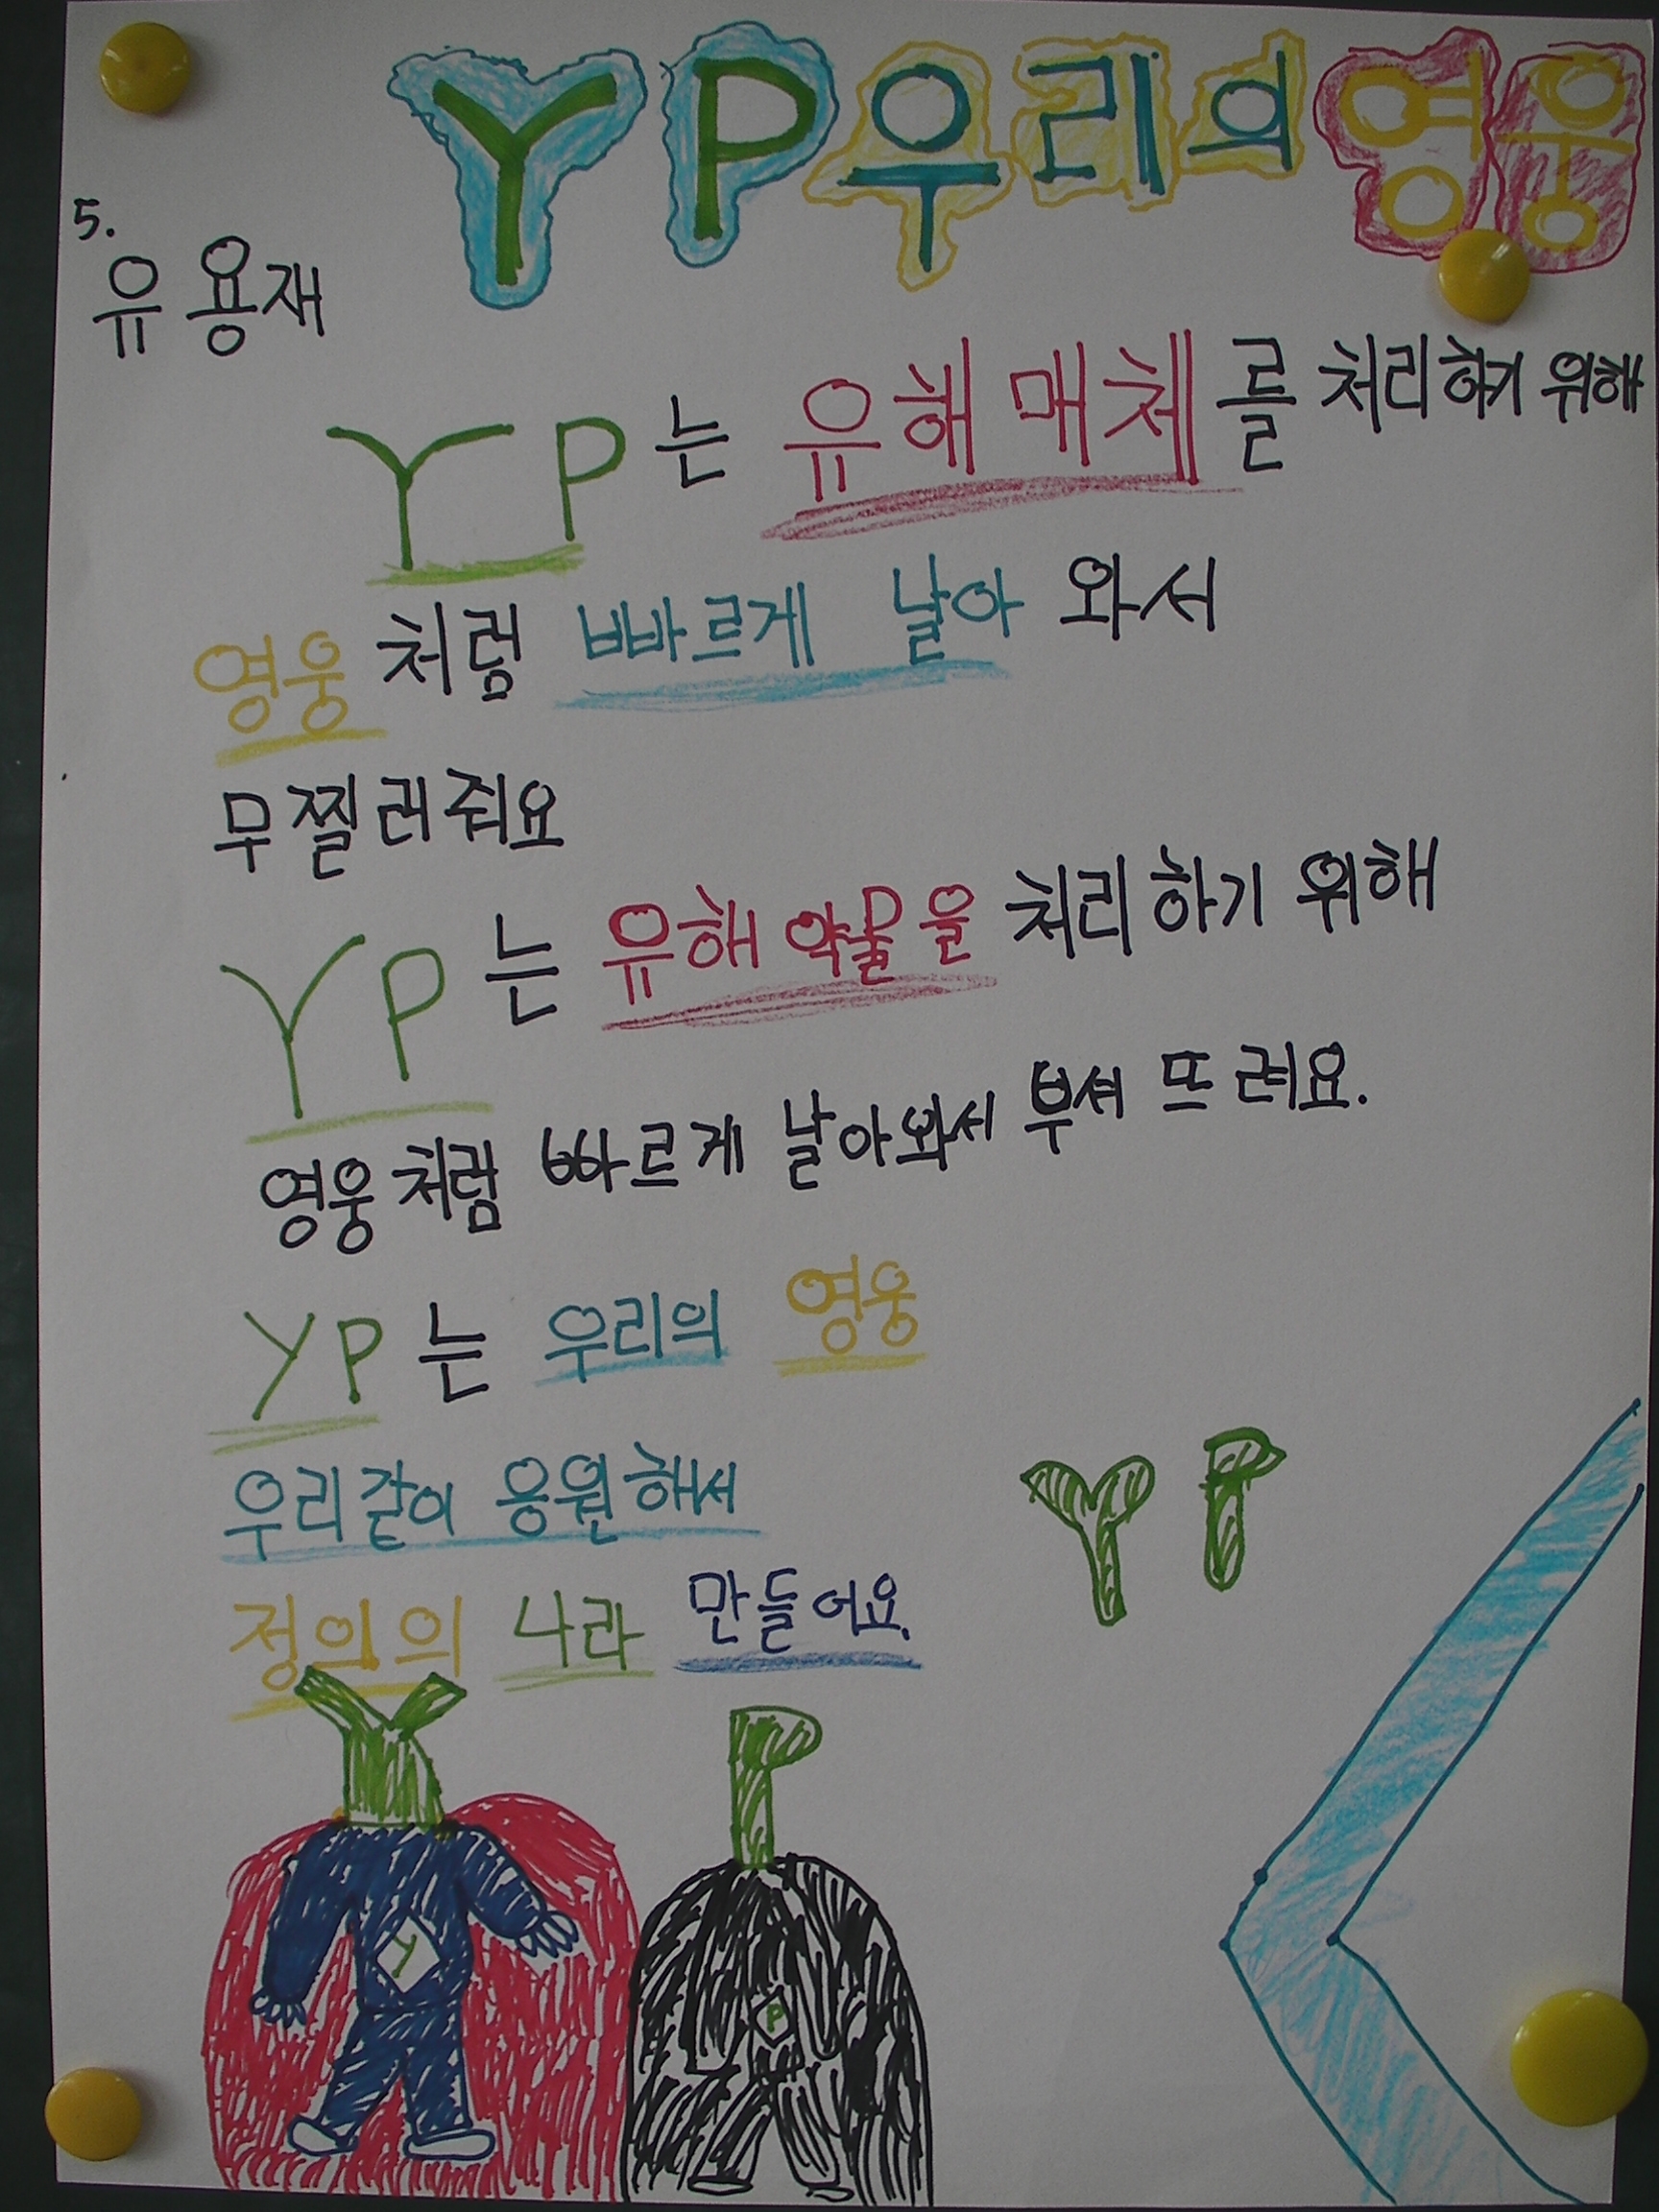 YP우리의영웅
5.
유용재
YP는 유해매체를 처리하기 위해
영웅처럼 빠르게 날아 와서
무찔러줘요
YP는 유해약물을 처리하기 위해
영웅처럼 빠르게 날아와서 부셔뜨려요.
YP는 우리의 영웅
우리같이 응원해서
정의의 나라 만들어요.
YP
Y
P